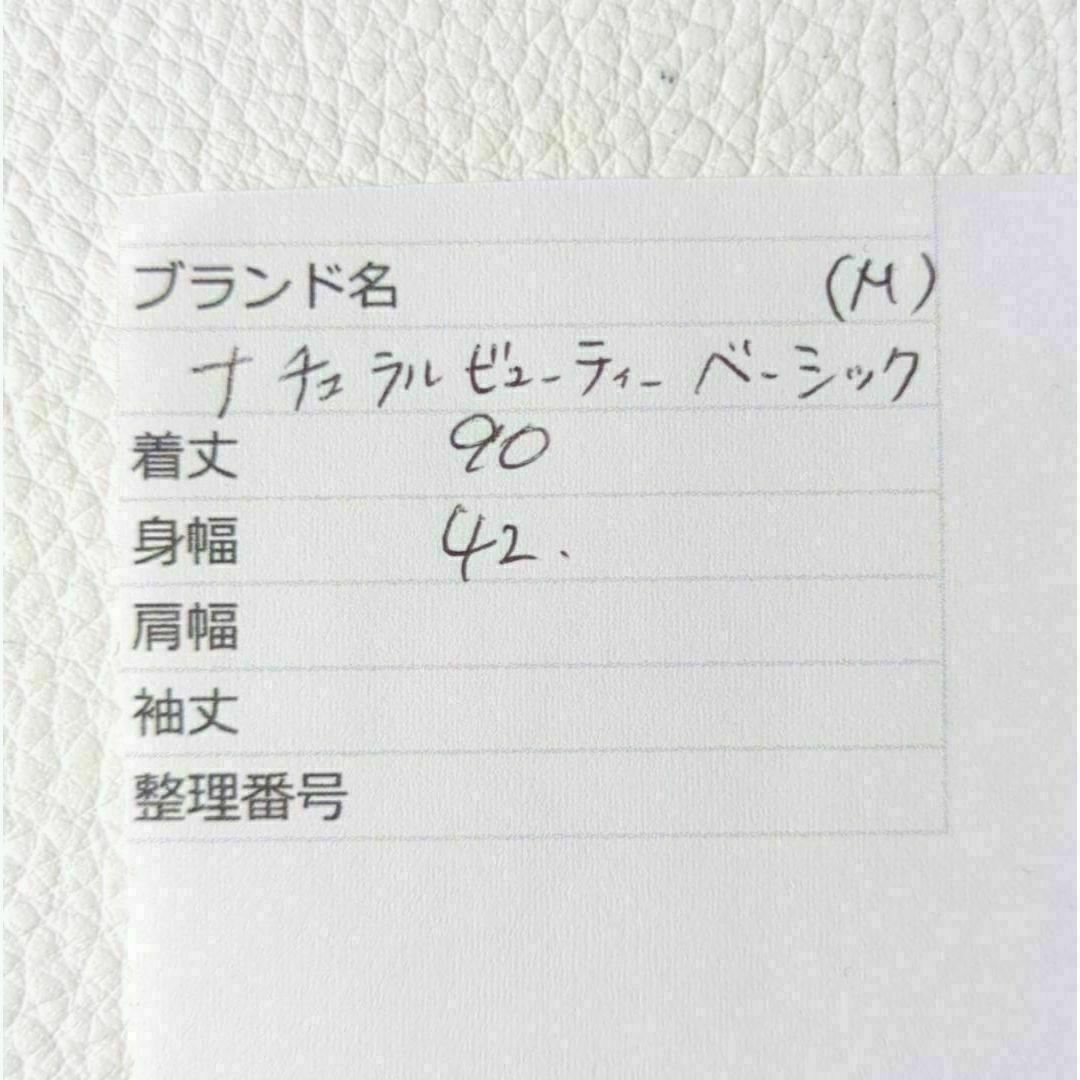 ブランド名 (M)
ナチュラルビューティーベーシック
着丈 90
身幅 42.
肩幅
袖丈
整理番号